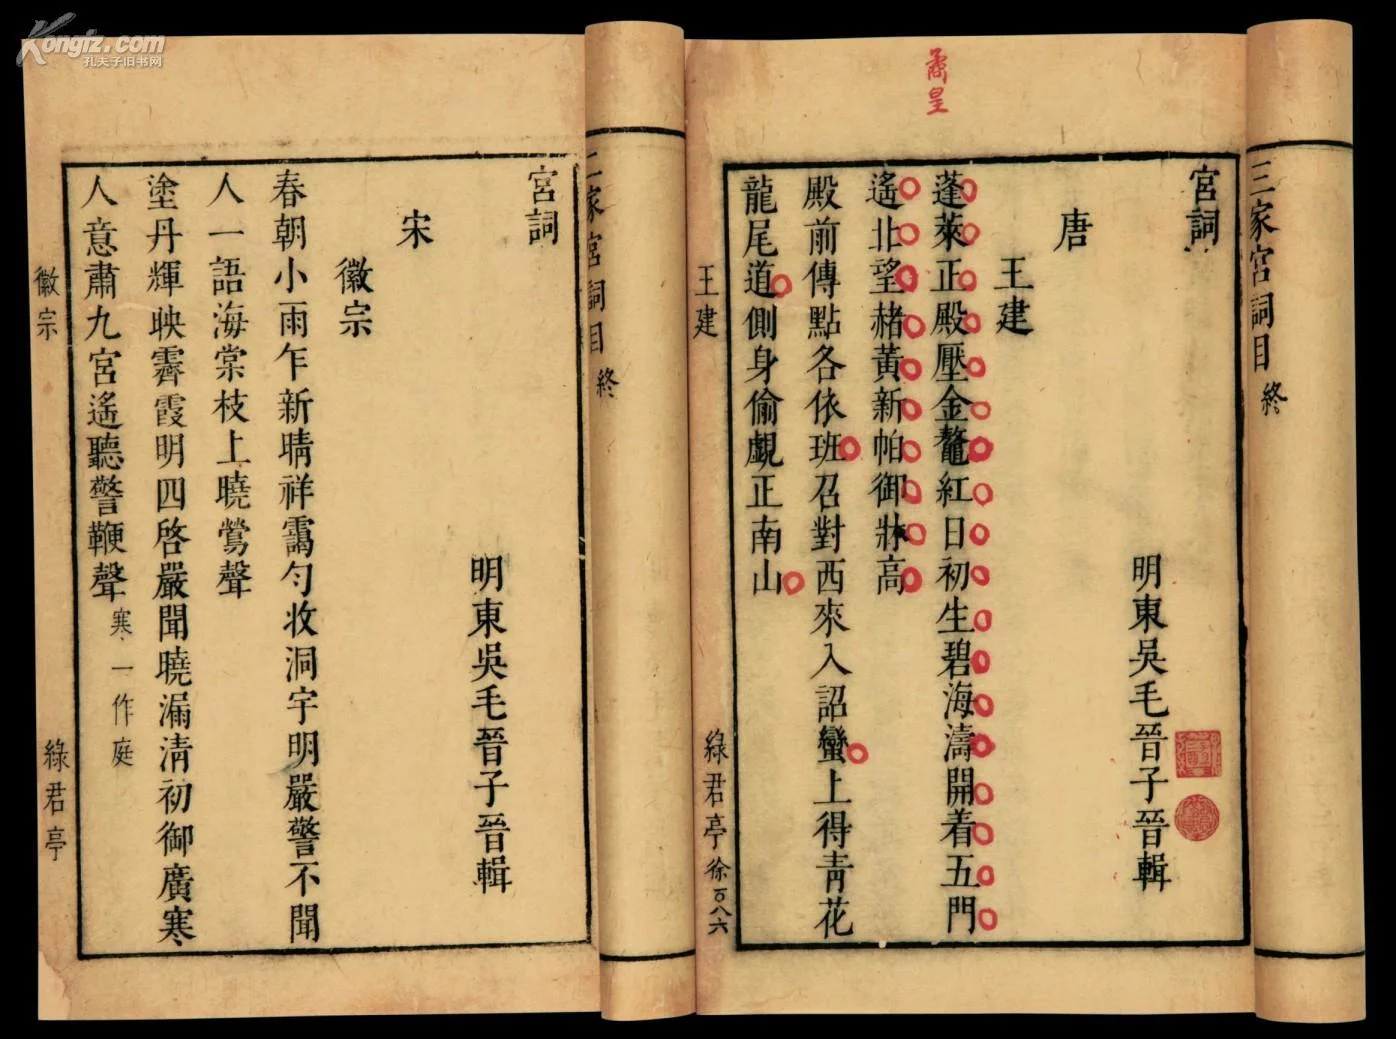 Kongfz.com
孔夫子旧书网
三家宮詞目 終
宮詞
明東吳毛晉子晉輯
唐
王建
蓬萊正殿壓金鼇紅日初生碧海濤開着五門
遙北望赭黃新帕御牀高
殿前傳點各依班召對西來入詔蠻上得青花
龍尾道側身偷覷正南山
王建
綠君亭 徐百八六
二家宮詞目 終
宮詞
明東吳毛晉子晉輯
宋
徽宗
春朝小雨乍新晴祥靄勻收洞宇明嚴警不聞
人一語海棠枝上曉鶯聲
塗丹輝映霽霞明四啓嚴聞曉漏清初御廣寒
人意肅九宮遙聽警鞭聲 寒一作庭
徽宗
綠君亭